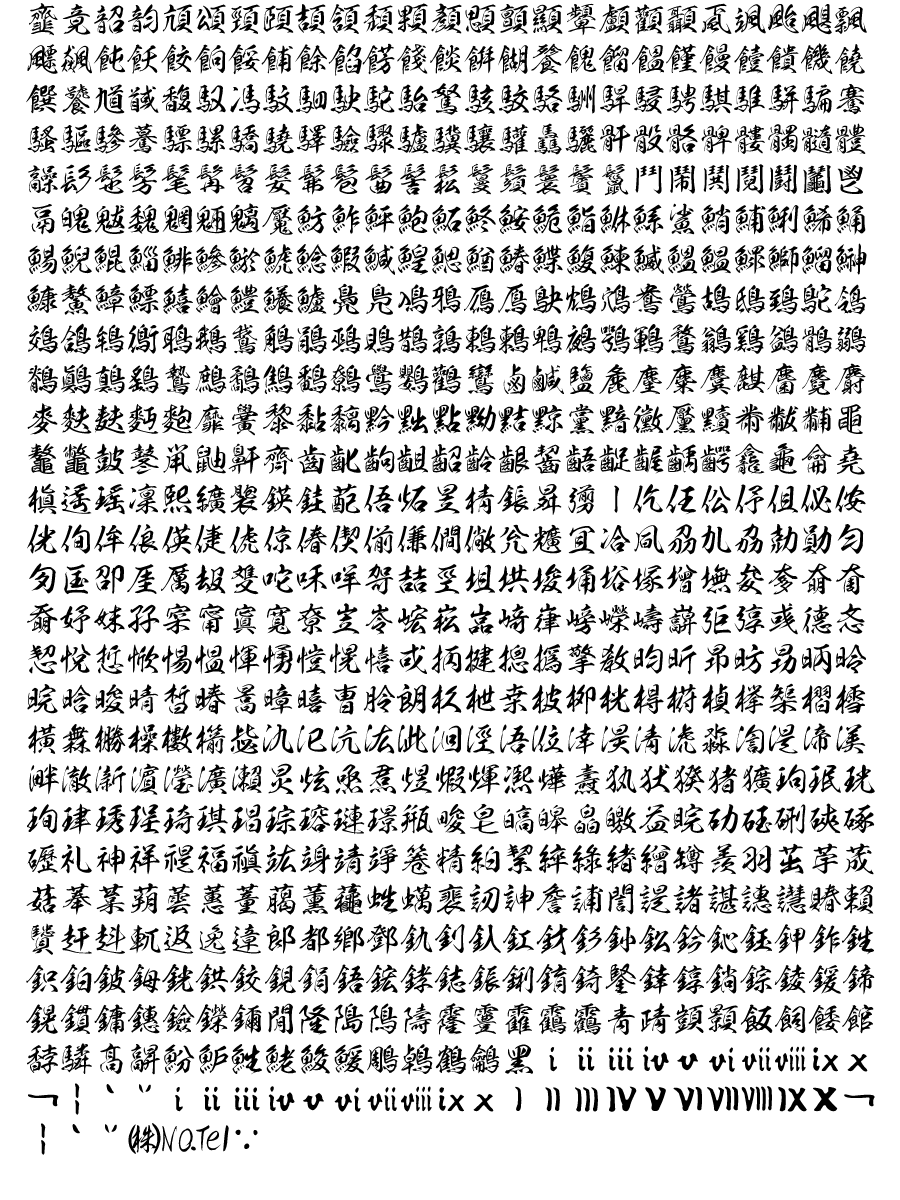 韲竟韶韵頏頌頸頤頡頷頽顆顏顋顫顯顰顱顴顳颪颯颱颶飄
飃飆飩飫餃餉餒餔餘餡餝餞餤餠餬餮餽餾饂饉饅饐饋饑饒
饌饕馗馘馥馭馮馼駟駛駝駘駑駭駮駱駲駻駸騁騏騅駢騙騫
騷驅驂驀驃騾驕驍驛驗驟驢驥驤驩驫驪骭骰骼髀髏髑髓體
髞髟髢髣髦髯髫髮髴髱髷髻鬆鬘鬚鬟鬢鬣鬥鬧鬨鬩鬪鬮鬯
鬲魄魃魏魍魎魑魘魴鮓鮃鮑鮖鮗鮟鮠鮨鮴鯀鯊鮹鯆鯏鯑鯒
鯣鯢鯤鯔鯡鰺鯲鯱鯰鰕鰔鰉鰓鰌鰆鰈鰒鰊鰄鰮鰛鰥鰤鰡鰰
鱇鰲鱆鰾鱚鱠鱧鱶鱸鳧鳬鳰鴉鴈鳫鴃鴆鴪鴦鶯鴣鴟鵄鴕鴒
鵁鴿鴾鵆鵈鵝鵞鵤鵑鵐鵙鵲鶉鶇鶫鵯鵺鶚鶤鶩鶲鷄鷁鶻鶸
鶺鷆鷏鷂鷙鷓鷸鷦鷭鷯鷽鸚鸛鸞鹵鹹鹽麁麈麋麌麒麕麑麝
麥麩麸麪麭靡黌黎黏黐黔黜點黝黠黥黨黯黴黶黷黹黻黼黽
鼇鼈皷鼕鼡鼬鼾齊齒齔齣齟齠齡齦齧齬齪齷齲齶龕龜龠堯
槇遙瑤凜熙纊褜鍈銈蓜俉炻昱棈鋹曻彅丨仡仼伀伃伹佖侒
侊侚侔俍偀倢俿倞偆偰偂傔僴僘兊兤冝冾凬刕劜劦勀勛匀
匇匤卲厓厲叝﨎咜咊咩哿喆坙坥垬埈埇﨏塚增墲夋奓奛奝
奣妤妺孖寀甯寘寬尞岦岺峵崧嵓﨑嵂嵭嶸嶹巐弡弴彧德忞
恝悅悊惞惕愠惲愑愷愰憘戓抦揵摠撝擎敎昀昕昻昉昮昞昤
晥晗晙晴晳暙暠暲暿曺朎朗杦枻桒柀栁桄棏﨓楨﨔榘槢樰
橫橆橳橾櫢櫤毖氿汜沆汯泚洄涇浯涖涬淏淸淲淼渹湜渧渼
溿澈澵濵瀅瀇瀨炅炫焏焄煜煆煇凞燁燾犱犾猤猪獷玽珉珖
珣珒琇珵琦琪琩琮瑢璉璟甁畯皂皜皞皛皦益睆劯砡硎硤硺
礰礼神祥禔福禛竑竧靖竫箞精絈絜綷綠緖繒罇羡羽茁荢荿
菇菶葈蒴蕓蕙蕫﨟薰蘒﨡蠇裵訒訷詹誧誾諟諸諶譓譿賰賴
贒赶﨣軏﨤逸遧郞都鄕鄧釚釗釞釭釮釤釥鈆鈐鈊鈺鉀鈼鉎
鉙鉑鈹鉧銧鉷鉸鋧鋗鋙鋐﨧鋕鋠鋓錥錡鋻﨨錞鋿錝錂鍰鍗
鎤鏆鏞鏸鐱鑅鑈閒隆﨩隝隯霳霻靃靍靏靑靕顗顥飯飼餧館
馞驎髙髜魵魲鮏鮱鮻鰀鵰鵫鶴鸙黑ⅰⅱⅲⅳⅴⅵⅶⅷⅸⅹ
￢￤＇＂ⅰⅱⅲⅳⅴⅵⅶⅷⅸⅹⅠⅡⅢⅣⅤⅥⅦⅧⅨⅩ￢
￤＇＂㈱№℡∵